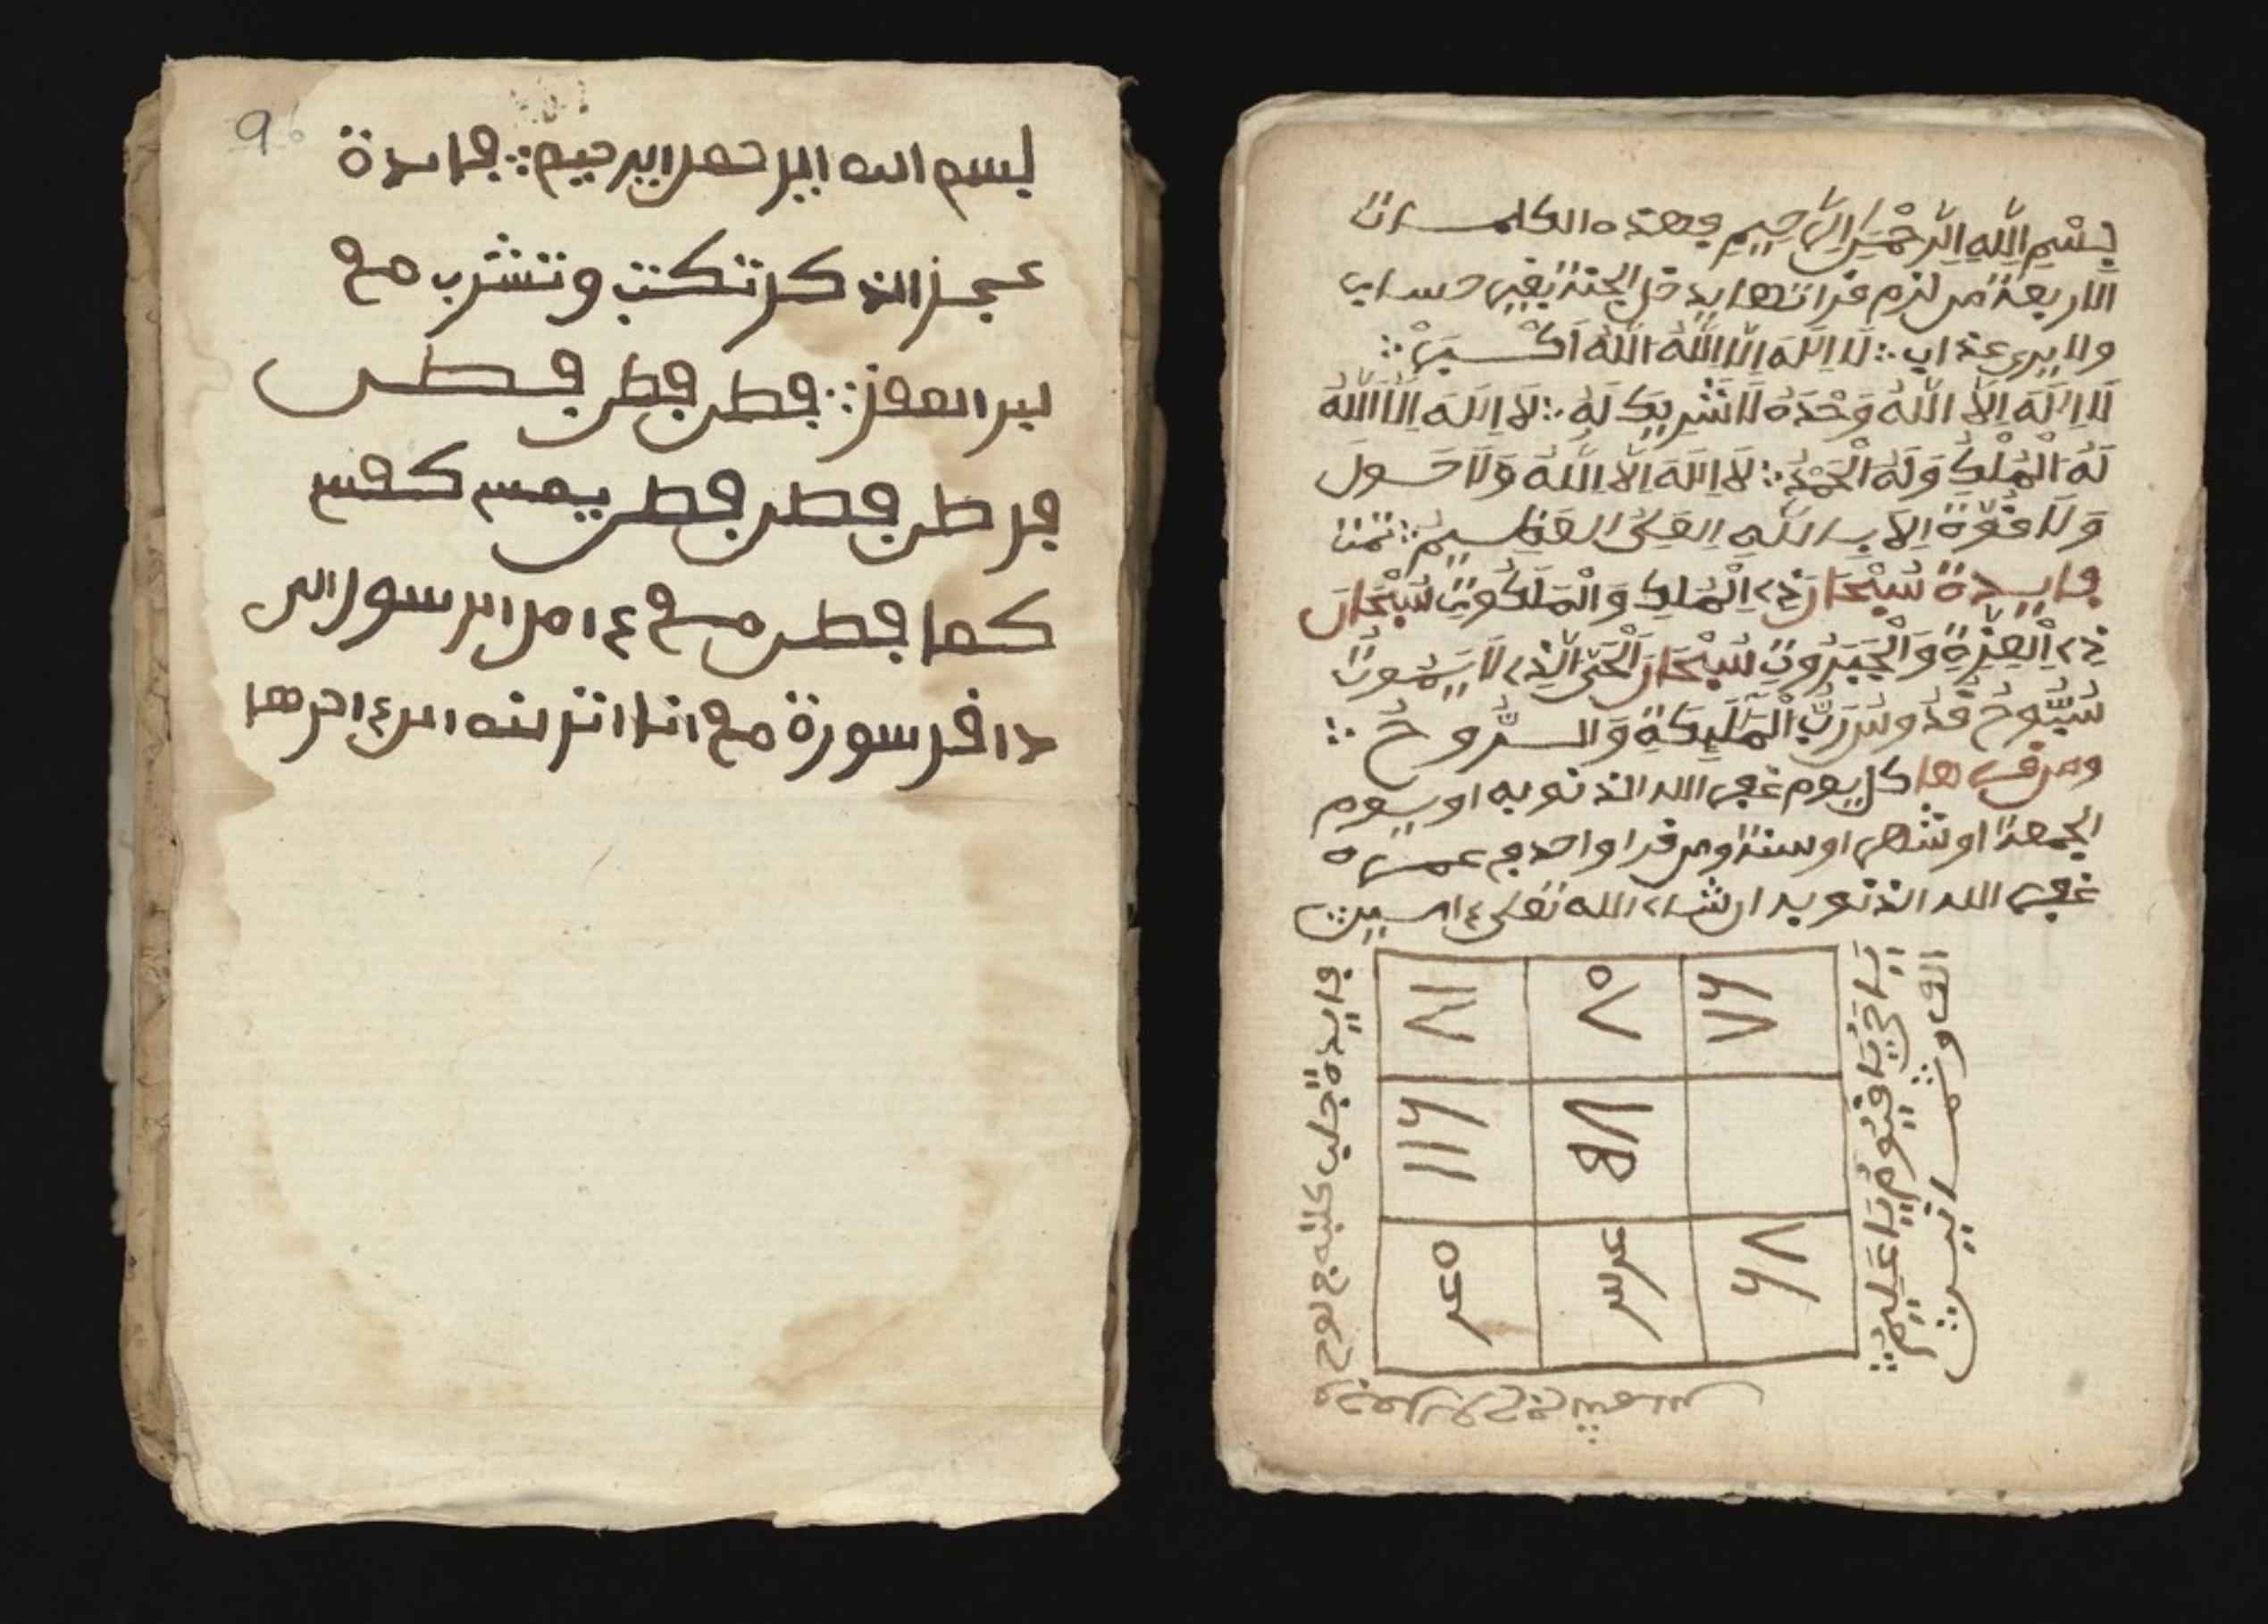 96
بسم الله الرحمن الرحيم ؞ فايدة
عجز الذكر تكتب وتشرب مع
لبن المعز ؞ فطر فطر فطر
فر طر فطر فطر
كما فطر مع ءامن الرسول الى
ءاخر سورة مع انا انزلنه الى ءاخرها
بِسْمِ اللَّهِ الرَّحْمَنِ الرَّحِيمِ فهذه الكلمات
الاربعة من لزم قراتها يدخل الجنة بغير حساب
ولا يرى عذاب ؞ لَا اِلَهَ اِلَّا اللَّهُ اللَّهُ اَكْبَرْ ؞
لَا اِلَهَ اِلَّا اللَّهُ وَحْدَهُ لَا شَرِيكَ لَهُ ؞ لَا اِلَهَ اِلَّا اللَّهُ
لَهُ الْمُلْكُ وَلَهُ الْحَمْدُ ؞ لَا اِلَهَ اِلَّا اللَّهُ وَلَا حَوْلَ
وَلَا قُوَّةَ اِلَّا بِاللَّهِ الْعَلِىِّ الْعَظِيمِ ؞ تمت
فايدة سُبْحَانَ ذِى الْمُلْكِ وَالْمَلَكُوتِ سُبْحَانَ
ذِى الْعِزَّةِ وَالْجَبَرُوتِ سُبْحَانَ الْحَىِّ الَّذِى لَا يَمُوتُ
سُبُّوحٌ قُدُّوسٌ رَبُّ الْمَلَيِكَةِ وَالرُّوحُ ؞
ومن قرىها كل يوم غفر الله الذنوبه او يوم
الجمعة او شهر او سنة او من قرا واحد في عمره
غفر الله الذنوبه ان شاء الله تعلى ءامين
فايدة جلب كتبه في لوح
٨١١ ٨٥ ٧٦
١١٦
٦٨
يَا حَىُّ يَا قَيُّومُ يَا عَلِيمُ ؞